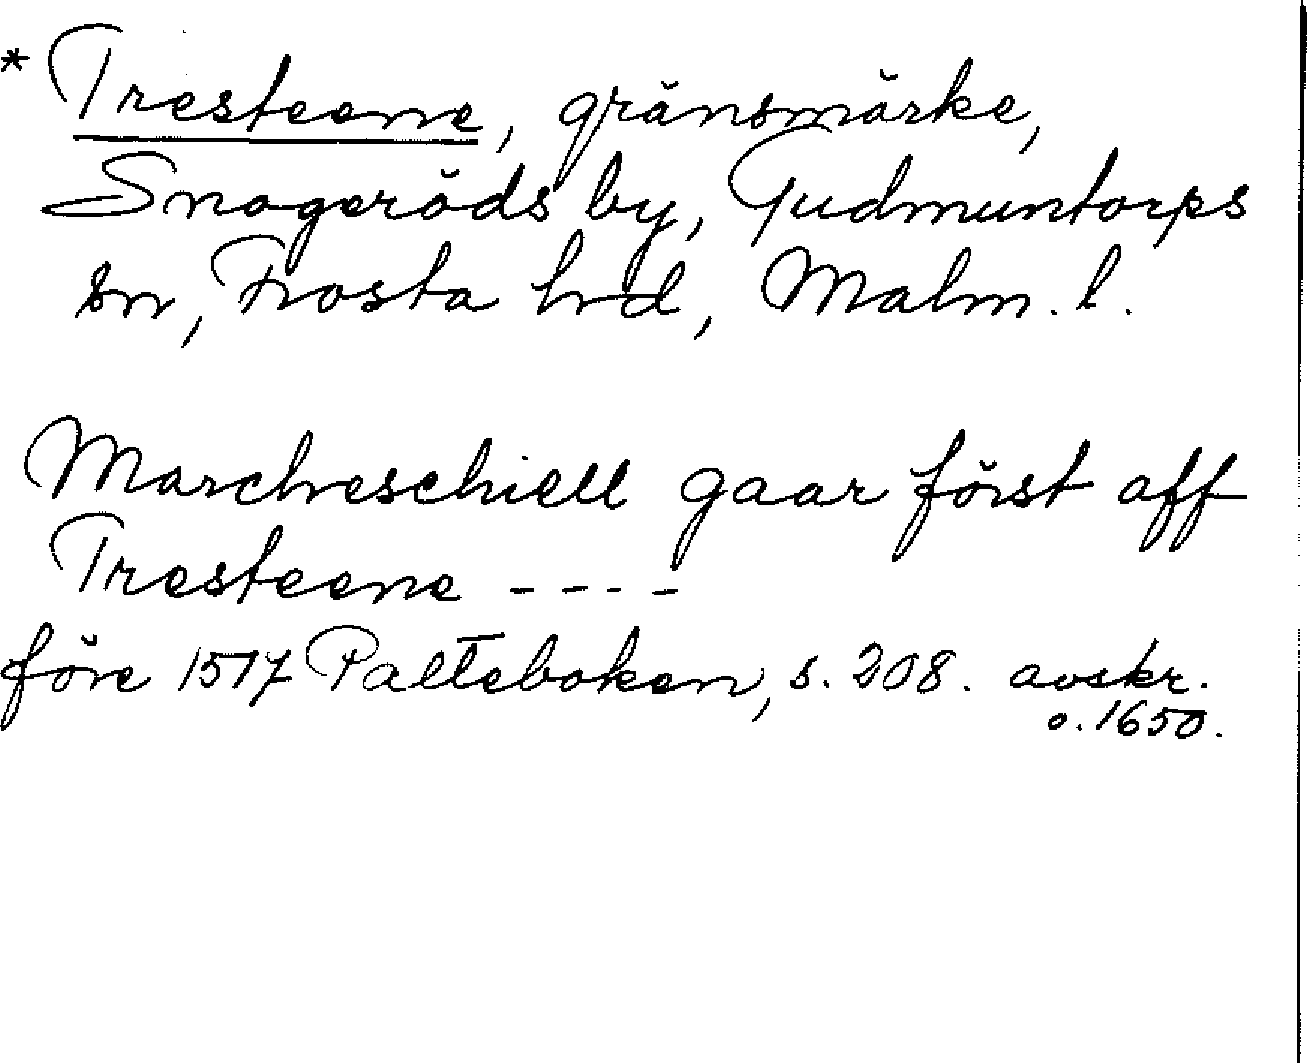 * Tresteene, gränsmärke,
Snogeröds by, Gudmuntorps
sn, Frosta hd, Malm. l.
Marcheschiell gaar först aff
Tresteene ----
före 1517 Palteboken, s. 208. avskr.
o. 1650.